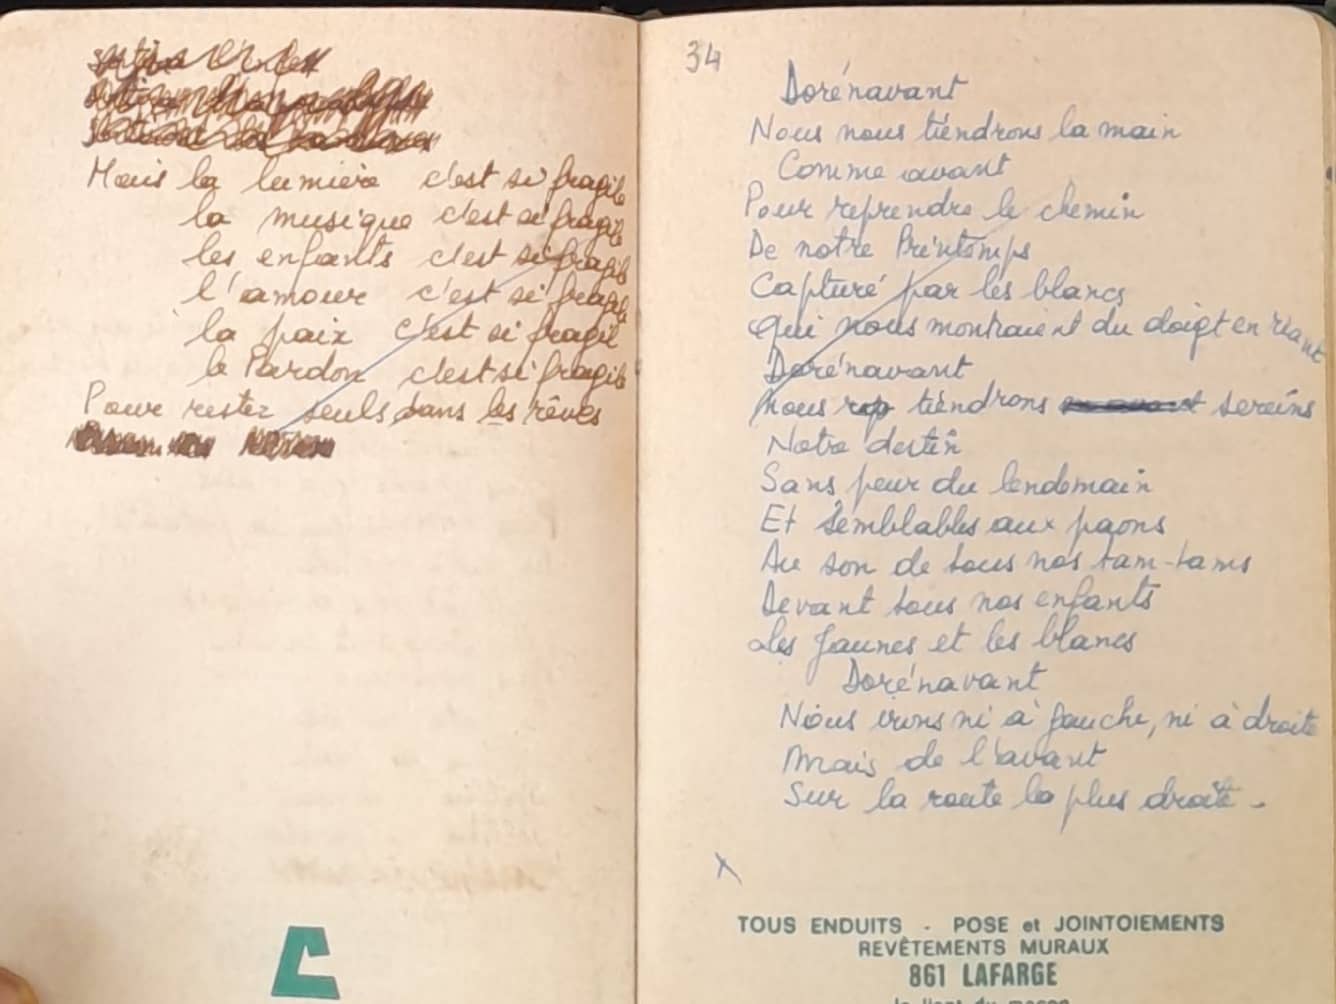 Mais la lumière c'est si fragile
la musique c'est si fragile
les enfants c'est si fragile
l'amour c'est si fragile
la paix c'est si fragil
le Pardon c'est si fragile
Pour rester seuls dans les rêves
34
Dorénavant
Nous nous tiendrons la main
Comme avant
Pour reprendre le chemin
De notre Printemps
Capturé par les blancs
Qui nous montraient du doigt en riant
Dorénavant
Nous tiendrons sereins
Notre destin
Sans peur du lendemain
Et semblables aux paons
Au son de tous nos tam-tams
Devant tous nos enfants
Les Jaunes et les blancs
Dorénavant
Nous irons ni à gauche, ni à droite
Mais de l'avant
Sur la route la plus droite.
x
TOUS ENDUITS - POSE et JOINTOIEMENTS
REVÊTEMENTS MURAUX
861 LAFARGE